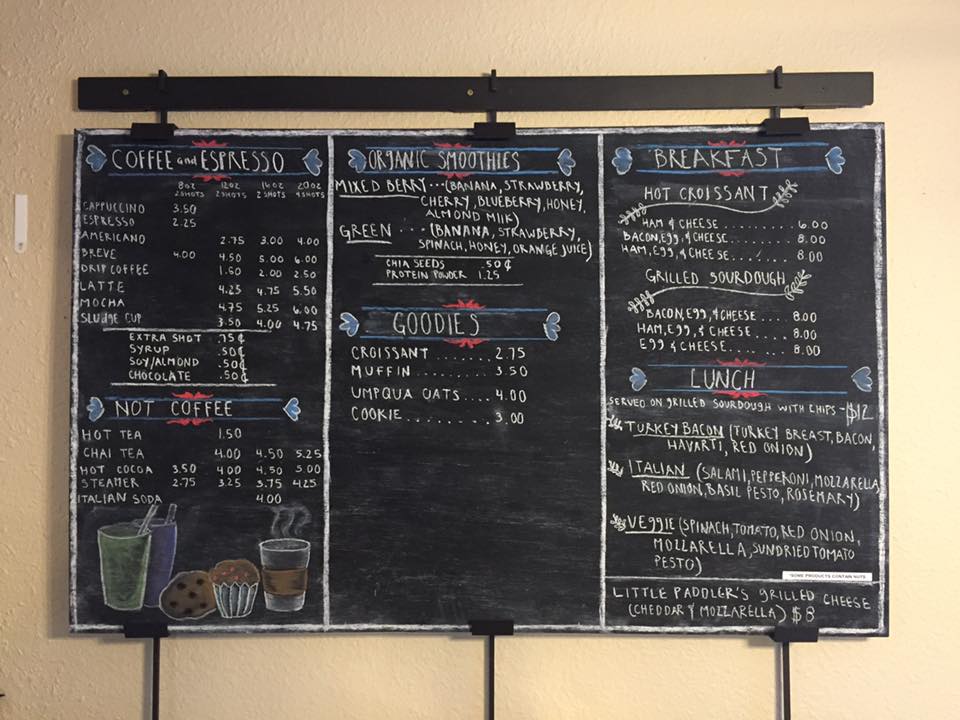 COFFEE and ESPRESSO
8oz 12oz 16oz 20oz
2 SHOTS 2 SHOTS 3 SHOTS 4 SHOTS
CAPPUCCINO 3.50
ESPRESSO 2.25
AMERICANO 2.75 3.00 4.00
BREVE 4.00 4.50 5.00 6.00
DRIP COFFEE 1.60 2.00 2.50
LATTE 4.25 4.75 5.50
MOCHA 4.75 5.25 6.00
SLUDGE CUP 3.50 4.00 4.75
EXTRA SHOT .75¢
SYRUP .50¢
SOY/ALMOND .50¢
CHOCOLATE .50¢
NOT COFFEE
HOT TEA 1.50
CHAI TEA 4.00 4.50 5.25
HOT COCOA 3.50 4.00 4.50 5.00
STEAMER 2.75 3.25 3.75 4.25
ITALIAN SODA 4.00
ORGANIC SMOOTHIES
MIXED BERRY...(BANANA, STRAWBERRY,
CHERRY, BLUEBERRY, HONEY,
ALMOND MILK)
GREEN ....(BANANA, STRAWBERRY,
SPINACH, HONEY, ORANGE JUICE)
CHIA SEEDS .50¢
PROTEIN POWDER 1.25
GOODIES
CROISSANT ........ 2.75
MUFFIN ........... 3.50
UMPQUA OATS .... 4.00
COOKIE .......... 3.00
BREAKFAST
HOT CROISSANT
HAM & CHEESE ........ 6.00
BACON, EGG, & CHEESE ....... 8.00
HAM, EGG, & CHEESE ..... 8.00
GRILLED SOURDOUGH
BACON, EGG, & CHEESE .... 8.00
HAM, EGG, & CHEESE ..... 8.00
EGG & CHEESE ........ 8.00
LUNCH
SERVED ON GRILLED SOURDOUGH WITH CHIPS - $12
TURKEY BACON (TURKEY BREAST, BACON,
HAVARTI, RED ONION)
ITALIAN (SALAMI, PEPPERONI, MOZZARELLA,
RED ONION, BASIL PESTO, ROSEMARY)
VEGGIE (SPINACH, TOMATO, RED ONION,
MOZZARELLA, SUNDRIED TOMATO
PESTO)
*SOME PRODUCTS CONTAIN NUTS
LITTLE PADDLER'S GRILLED CHEESE
(CHEDDAR & MOZZARELLA) $8